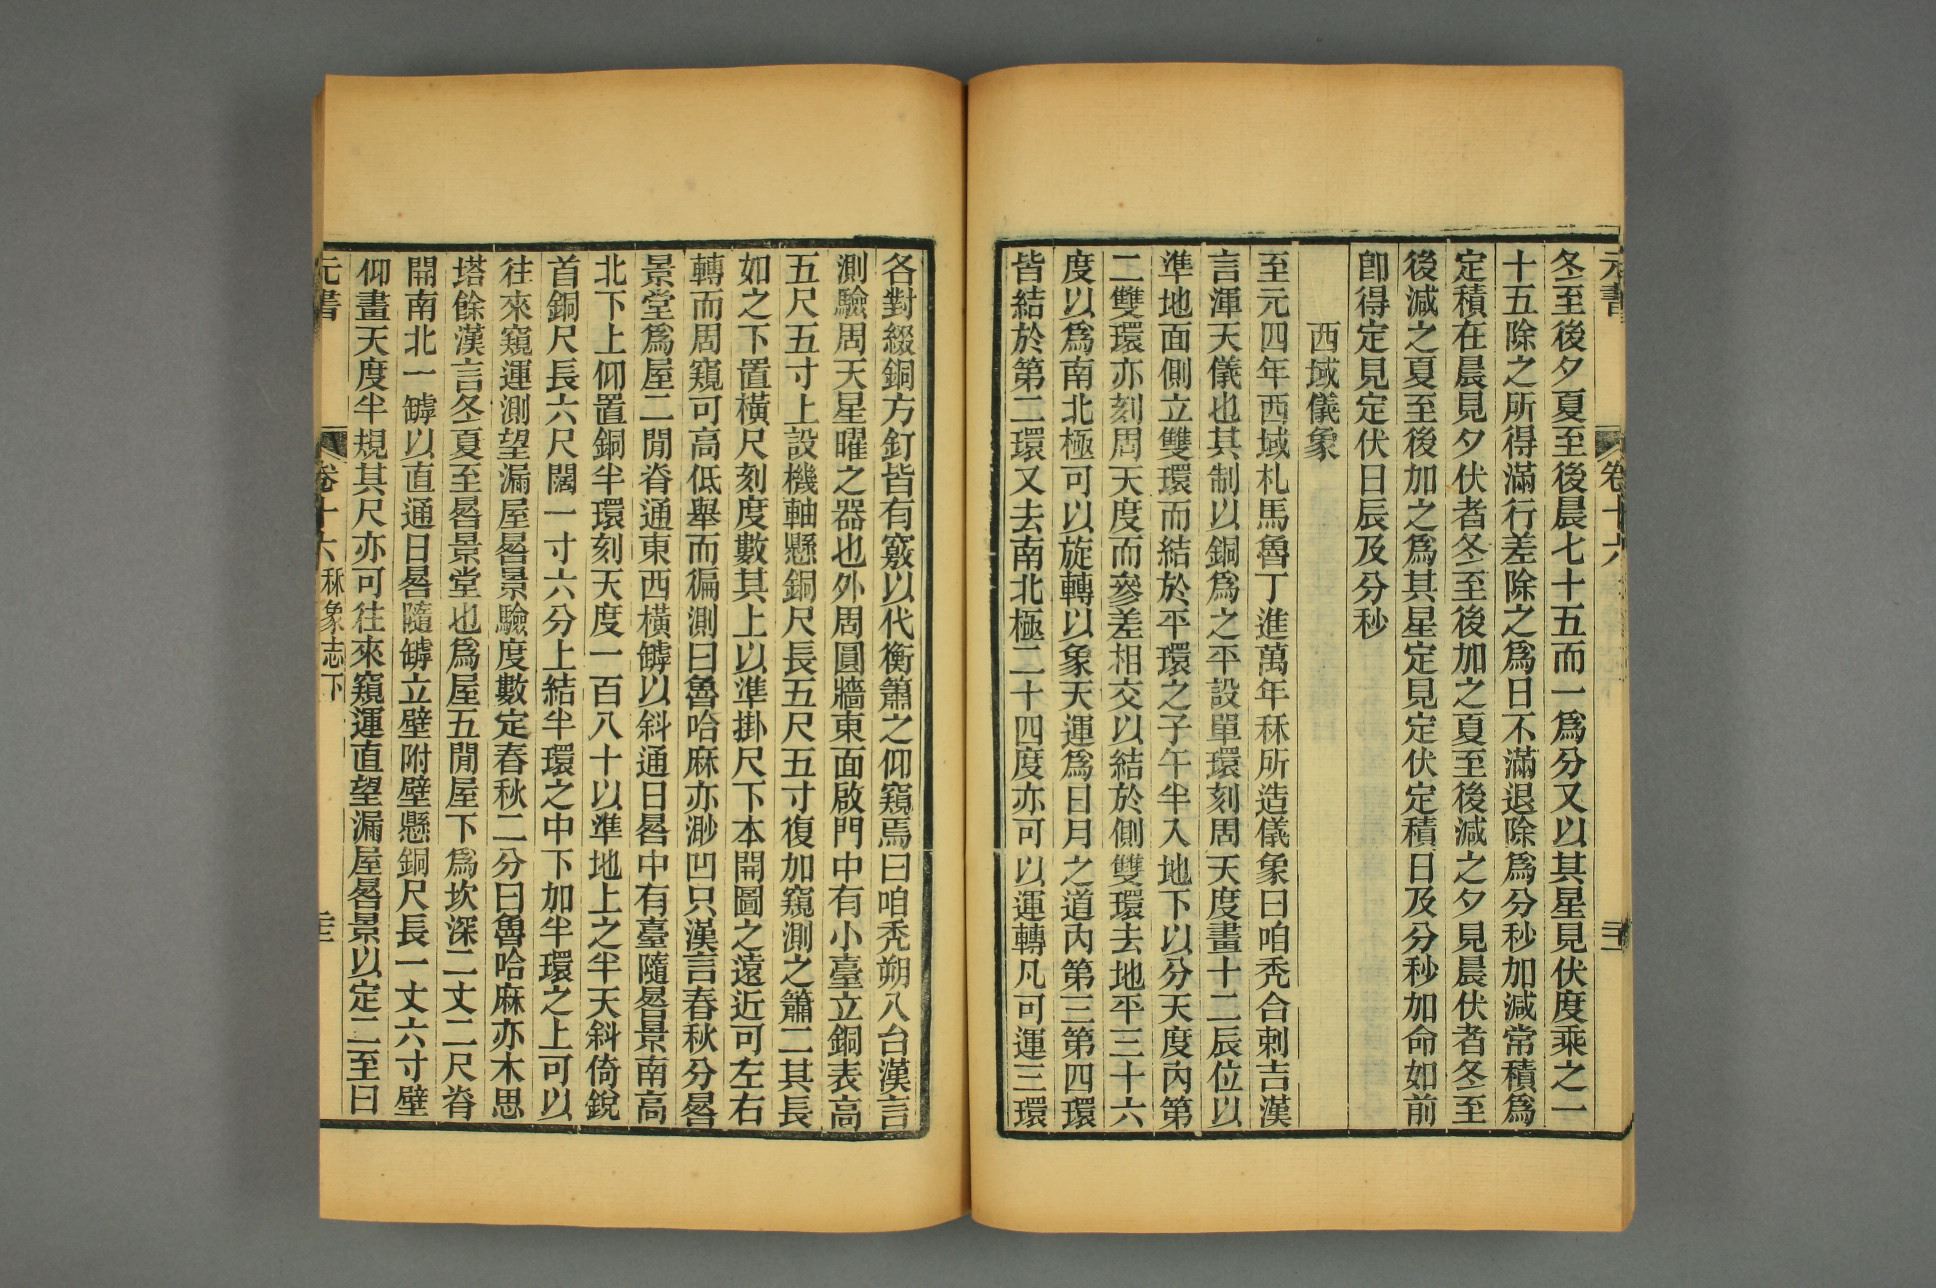 元書
卷十六
冬至後夕夏至後晨七十五而一爲分又以其星見伏度乘之一
十五除之所得滿行差除之爲日不滿退除爲分秒加減常積爲
定積在晨見夕伏者冬至後加之夏至後減之夕見晨伏者冬至
後減之夏至後加之爲其星定見定伏定積日及分秒加命如前
卽得定見定伏日辰及分秒
西域儀象
至元四年西域札馬魯丁進萬年秝所造儀象曰咱秃合剌吉漢
言渾天儀也其制以銅爲之平設單環刻周天度畫十二辰位以
準地面側立雙環而結於平環之子午半入地下以分天度內第
二雙環亦刻周天度而參差相交以結於側雙環去地平三十六
度以爲南北極可以旋轉以象天運爲日月之道內第三第四環
皆結於第二環又去南北極二十四度亦可以運轉凡可運三環
各對綴銅方釘皆有竅以代衡簫之仰窺焉曰咱秃朔八台漢言
測驗周天星曜之器也外周圓牆東面啟門中有小臺立銅表高
五尺五寸上設機軸懸銅尺長五尺五寸復加窺測之簫二其長
如之下置橫尺刻度數其上以準掛尺下本開圖之遠近可左右
轉而周窺可高低舉而徧測曰魯哈麻亦渺凹只漢言春秋分晷
景堂爲屋二閒脊通東西橫罅以斜通日晷中有臺隨晷景南高
北下上仰置銅半環刻天度一百八十以準地上之半天斜倚銳
首銅尺長六尺闊一寸六分上結半環之中下加半環之上可以
往來窺運測望漏屋晷景驗度數定春秋二分曰魯哈麻亦木思
塔餘漢言冬夏至晷景堂也爲屋五閒屋下爲坎深二丈二尺脊
開南北一罅以直通日晷隨罅立壁附壁懸銅尺長一丈六寸壁
仰畫天度半規其尺亦可往來窺運直望漏屋晷景以定二至曰
元書
卷十六
秝象志下